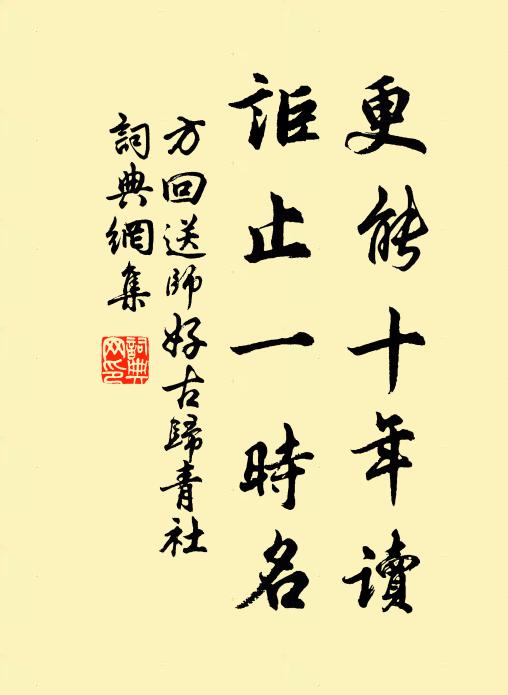 更能十年讀
詎止一時名
方回送師好古歸青社
詞典網集
詞典网印